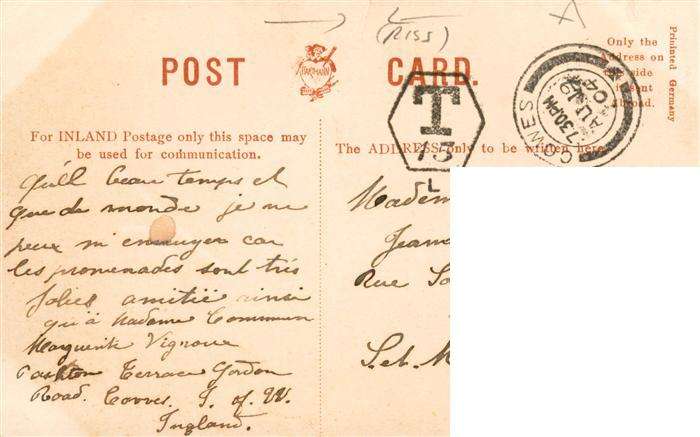 (RISS)
POST CARD.
HARTMANN
Only the
Address on
this side
if sent
Abroad.
Printed Germany
T
15
L
COWES
7.30PM
AU 12
04
For INLAND Postage only this space may
be used for communication.
The ADDRESS only to be written here.
Qu'ell beau temps et
que de monde je ne
peux m'ennuyer car
les promenades sont très
jolies amitié ainsi
qu'à Madame Commun
Marguerite Vignoue
Terrace Gordon
Road. Cowes. I. of W.
Ingland.
Madem
Jeann
Rue So
S.et.M